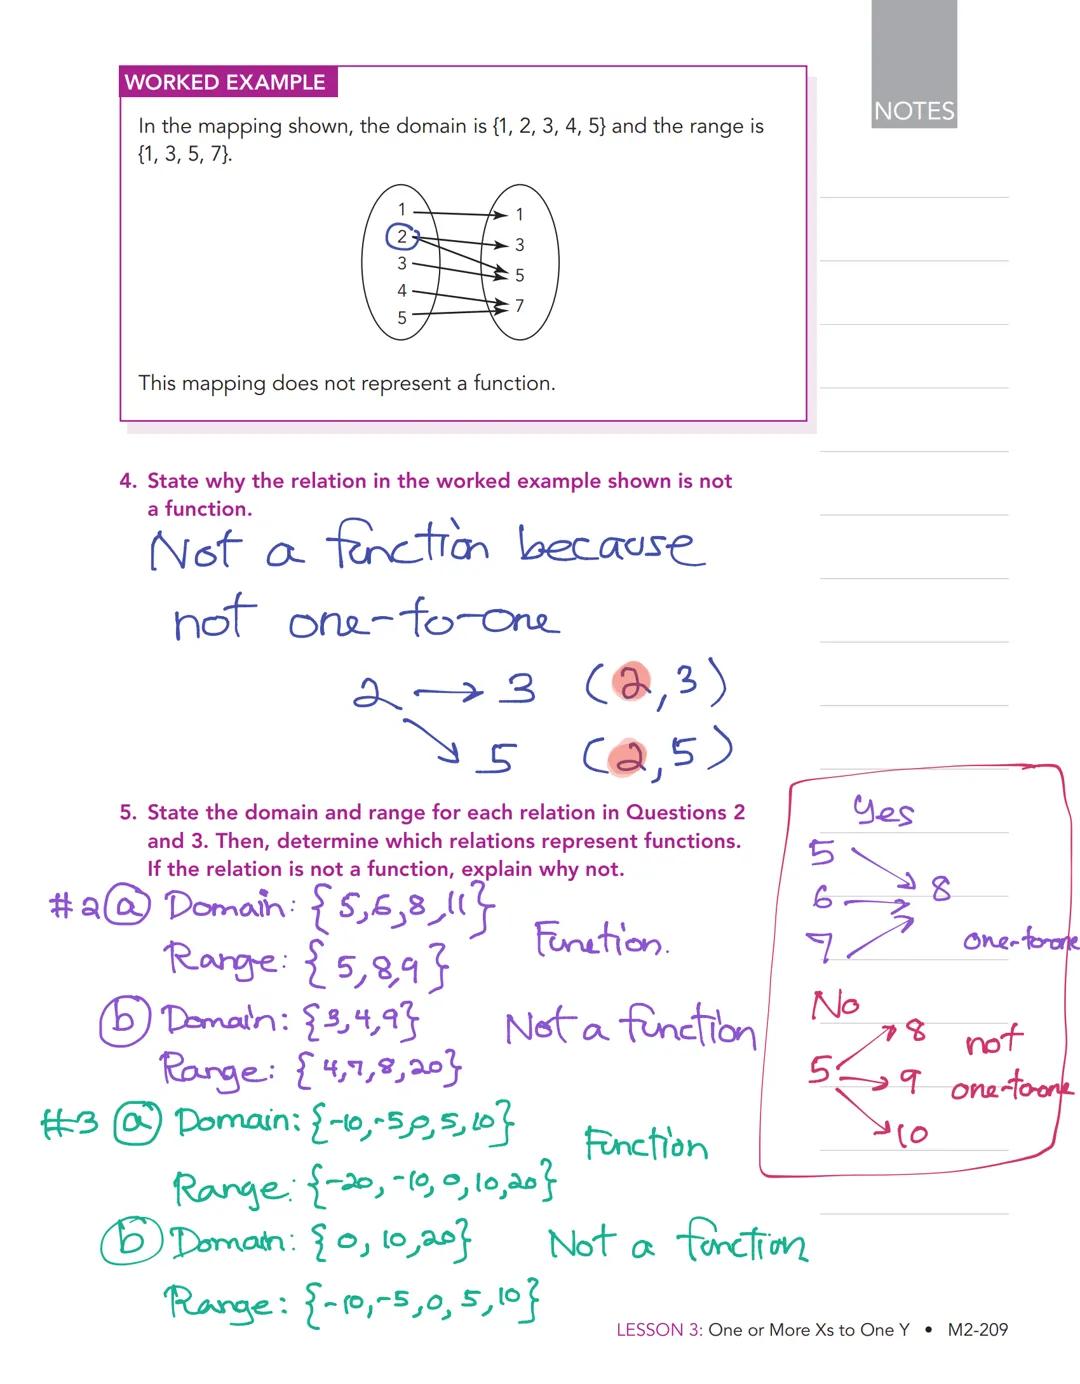 NOTES
WORKED EXAMPLE
In the mapping shown, the domain is {1, 2, 3, 4, 5} and the range is
{1, 3, 5, 7}.
1 1
2 3
3 5
4 7
5
This mapping does not represent a function.
4. State why the relation in the worked example shown is not
a function.
Not a function because
not one-to-one
2 → 3 (2,3)
5 (2,5)
5. State the domain and range for each relation in Questions 2
and 3. Then, determine which relations represent functions.
If the relation is not a function, explain why not.
#2 a Domain: {5,6,8,11}
Range: {5,8,9}
Function.
b Domain: {3,4,9}
Range: {4,7,8,20}
Not a function
#3 a Domain: {-10,-5,0,5,10}
Range: {-20,-10,0,10,20}
Function
b Domain: {0,10,20}
Range: {-10,-5,0,5,10}
Not a function
Yes
5
6 → 8
7
one-to-one
No
8
5 → 9
10
not
one-to-one
LESSON 3: One or More Xs to One Y • M2-209